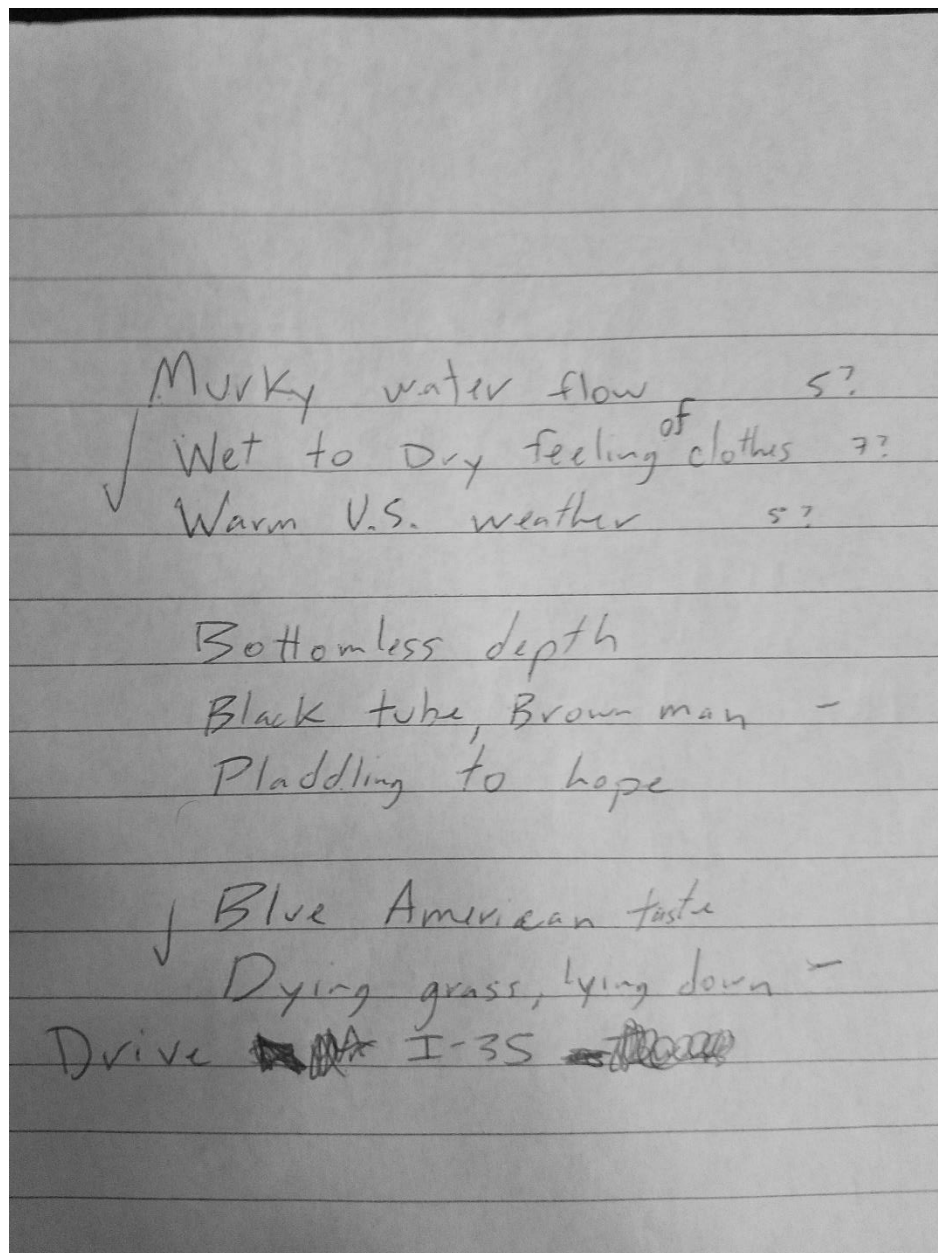 Murky water flow 5?
Wet to Dry feeling of clothes 7?
Warm U.S. weather 5?
Bottomless depth
Black tube, Brown man -
Pladdling to hope
Blue American taste
Dying grass, lying down -
Drive I-35